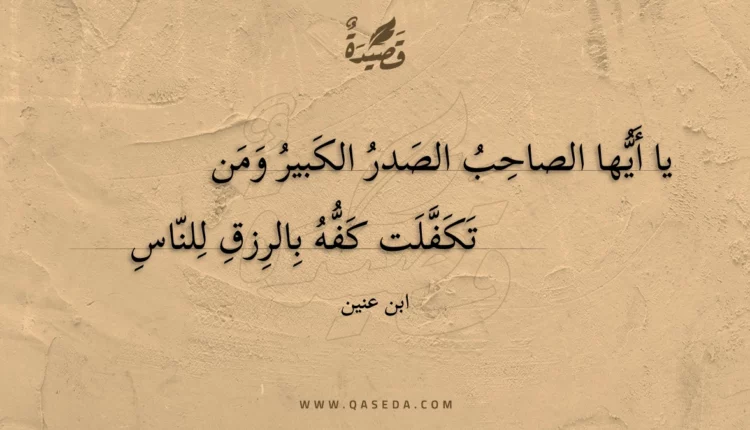 قَصِيدَةٌ
يا أَيُّها الصاحِبُ الصَدرُ الكَبيرُ وَمَن
تَكَفَّلَت كَفُّهُ بِالرِزقِ لِلنّاسِ
ابن عنين
WWW.QASEDA.COM